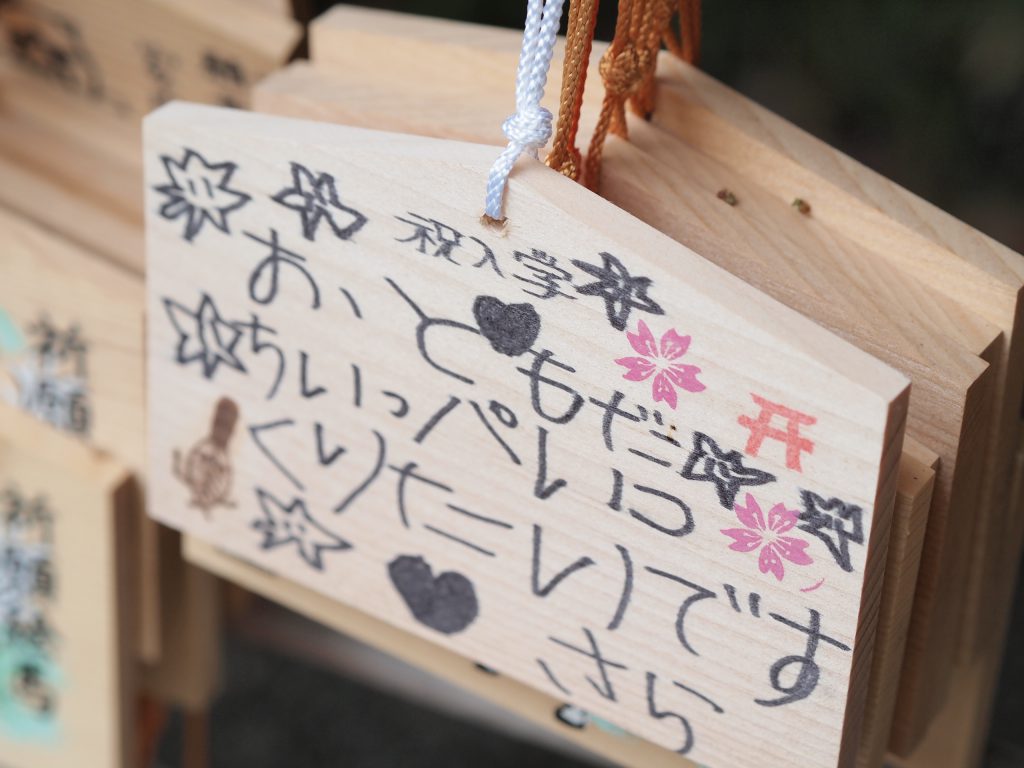 祝入学
おともだ
ちいっぱいつ
くりたいです
さら
祈願